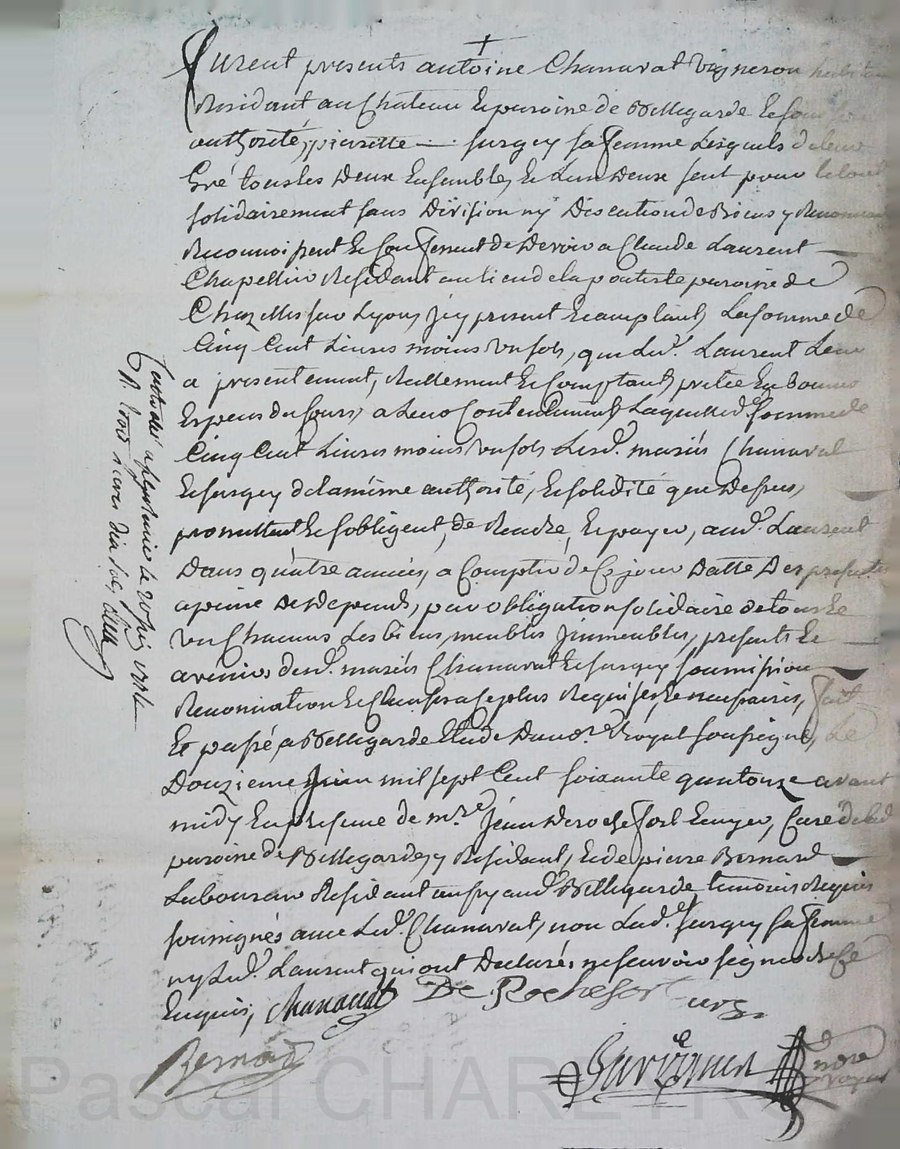 furent presents antoine Chanavat vigneron habitan
Residant au Chateau et paroine de Bellegarde et sous son
authorité, pierrette — furgey sa femme Lesquels de leur
Gré tous les deux Ensemble, et Lun deux seul pour le tout
solidairement sans Division ny Discution de Biens y Renoncan
Reconnoissent et Confessent de Devoir a Claude Laurent
Chapellier Residant au lieu de la paroine de
Chazelles sur Lyon, Jcy present et acceptant, La somme de
Cinq Cent Livres moins un sols, que Led.t Laurent Leur
a presentement, Reellement et Comptant, pretée En bonnes
Especes du Cours, a Leur Contentement, Laquelle d. somme de
Cinq Cent Livres moins un sols Lesd.t mariés Chanavat
et furgey de la même authorité, et solidité que Dessus,
promettent et sobligent, de Rendre, Et payer, aud.t Laurent
Dans quatre années, a Compter de Ce jour Datte Des presentes
a peine de Depends, par obligation solidaire de tous Et
un Chacuns Les biens, meubles Jmmeubles, presents Et
avenirs desd.t mariés Chanavat et furgey soumission
Renonciation et Clauses a ce plus Requises, et necessaires, fait
Et passé, a Bellegarde Etude Du no.re Royal soussigné, Le
Douzieme juin mil sept Cent soixante quatorze avant
midy En presence de m.re jean De rochefort Ecuyer, Curé dud.
paroine de Bellegarde, y Residant, et de pierre Bernard
Laboureur Residant aud. Bellegarde temoins Requis
soussignés avec Led.t Chanavat, non Lad.te furgey sa femme
ny Led.t Laurent qui ont Declarés ne scavoir signer de Ce
Enquis, Chanavat De Rochefort curé
Bernard
no.re royal
Pascal CHARE